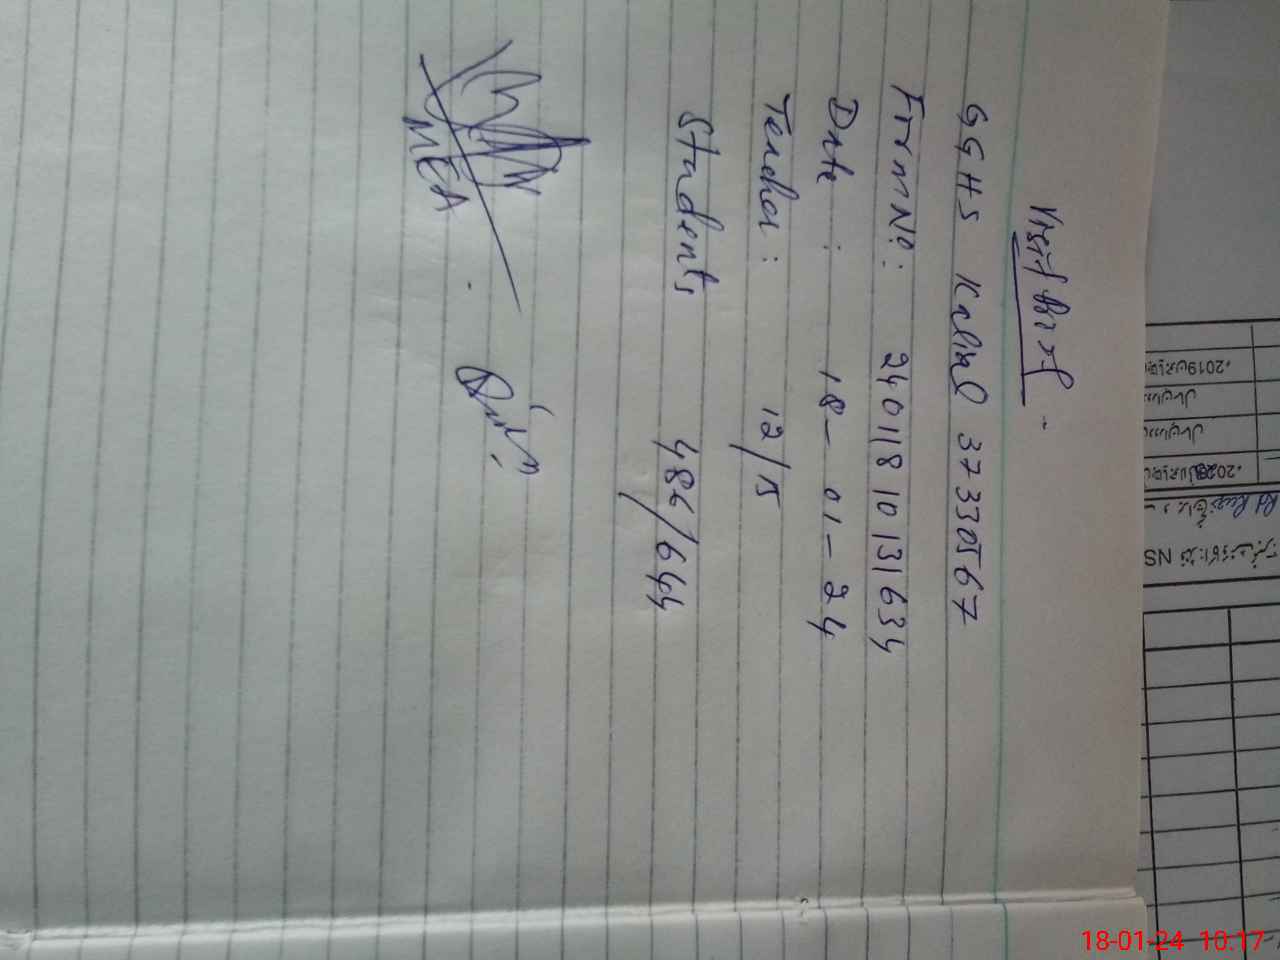 Visit Brief
GGHS Kalial 37330567
Form No: 240118 10131634
Date : 18-01-24
Teacher : 12/15
Students 486/644
MEA
18-01-24 10:17